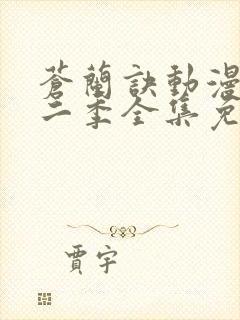 蒼蘭訣動漫
二季全集免
賈宇